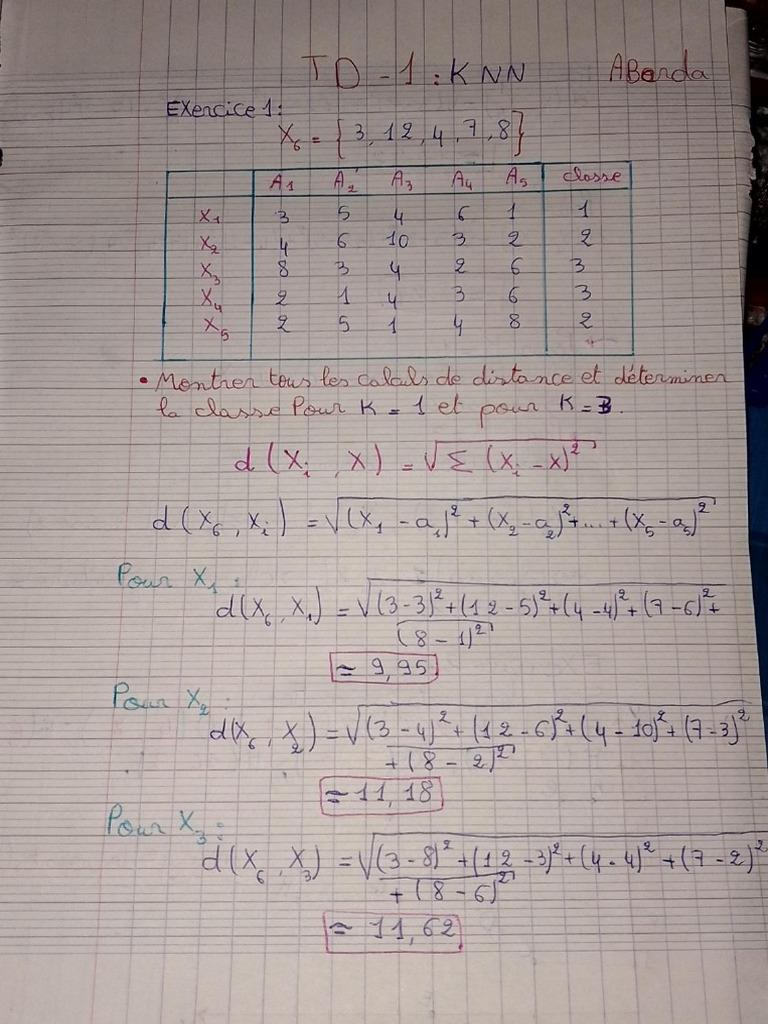 TD-1: KNN ABorda
EXercice 1:
X₆ = {3, 12, 4, 7, 8}
A₁ A₂ A₃ A₄ A₅ classe
X₁ 3 5 4 6 1 1
X₂ 4 6 10 3 2 2
X₃ 8 3 4 2 6 3
X₄ 2 1 4 3 6 3
X₅ 2 5 1 4 8 2
• Montrer tous les calculs de distance et déterminer
la classe Pour K = 1 et pour K = 3.
d(Xᵢ, X) = √Σ (Xᵢ - X)²
d(X₆, Xᵢ) = √(X₁ - a₁)² + (X₂ - a₂)² + ... + (X₅ - a₅)²
Pour X₁:
d(X₆, X₁) = √(3-3)² + (12-5)² + (4-4)² + (7-6)² +
(8-1)²
≈ 9,95
Pour X₂:
d(X₆, X₂) = √(3-4)² + (12-6)² + (4-10)² + (7-3)²
+ (8-2)²
≈ 11,18
Pour X₃:
d(X₆, X₃) = √(3-8)² + (12-3)² + (4-4)² + (7-2)²
+ (8-6)²
≈ 11,62